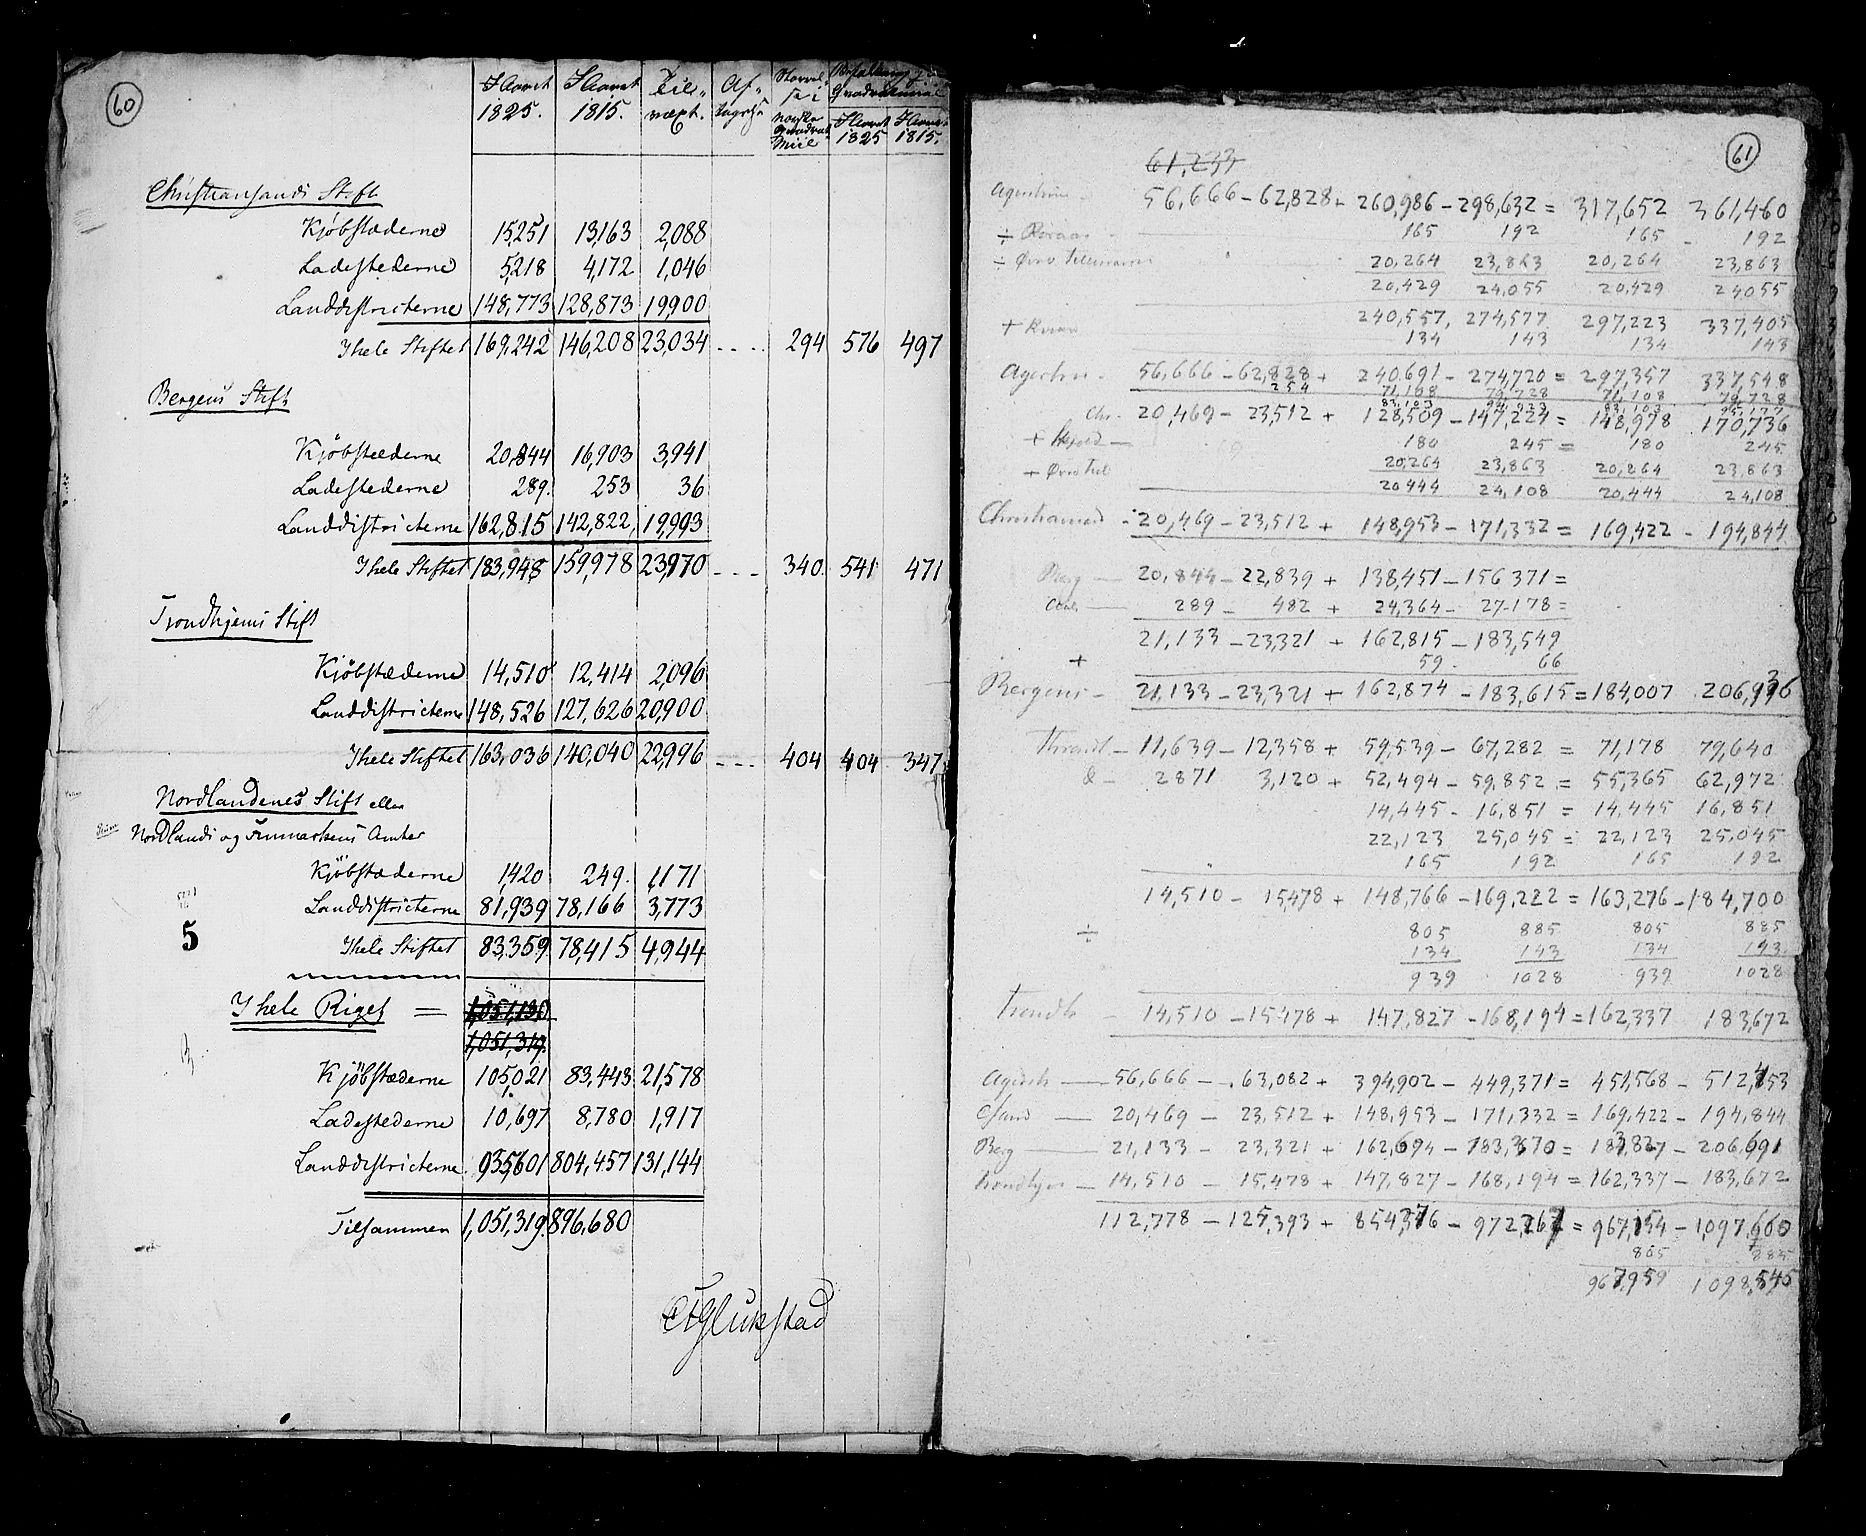 60
I Aaret 1825. I Aaret 1815. Til-væxt. Af-tagelse Størrelse i norske Quadrat Miil Befolkning Quadratmiil I Aaret 1825 I Aaret 1815.
Christiansands Stift
Kjøbstæderne 15251 13,163 2,088
Ladestederne 5,218 4,172 1,046
Landdistricterne 148,773 128,873 19,900
I hele Stiftet 169,242 146,208 23,034 - - - - 294 576 497
Bergens Stift
Kjøbstæderne 20,844 16,903 3,941
Ladestederne 289. 253 36
Landdistricterne 162,815 142,822, 19,993
I hele Stiftet 183,948 159,978 23,970 - - - 340. 541 471
Trondhjems Stift
Kjøbstæderne 14,510 12,414 2,096
Landdistricterne 148,526 127,626 20,900
I hele Stiftet 163,036 140,040 22,996 - - - 404 404 347
Nordlandenes Stift eller
Nordlands og Finmarkens Amter
Kjøbstæderne 1,420 249. 1,171
Landdistricterne 81,939 78,166 3,773
5
I hele Stiftet 83,359 78,415 4,944
I hele Riget = 1,051,130
1,051,319.
Kjøbstæderne 105,021 83,443 21,578
Ladestederne 10,697 8,780 1,917
Landdistricterne 935,601 804,457 131,144
Tilsammen 1,051,319. 896,680
61
61,233
56,666 - 62,828 + 260,986 - 298,632 = 317,652 361,460
÷ Røraas - 165 192 165 - 192
÷ Øvre Tellemarken 20,264 23,863 20,264 23,863
20,429 24,055 20,429 24055
240,557, 274,577 297,223 337,405
+ 134 143 134 143
56,666 - 62,828 + 240,691 - 274,720 = 297,357 337,548
254 71,108 79,728 71,108 79,728
Chr. 20,469 - 23,512 + 128,509 - 147,224 = 148,978 170,736
+ 180 245 = 180 245
+ Øvre Tel 20,264 23,863 20,264 23,863
20,444 24,108 20,444 24,108
Christiansand - 20,469 - 23,512 + 148,953 - 171,332 = 169,422 - 194,844
Berg - 20,844 - 22,839 + 138,451 - 156 371 =
289 - 482 + 24,364 - 27.178 =
21,133 - 23,321 + 162,815 - 183,549
+ 59. 66
Bergens - 21,133 - 23,321 + 162,874 - 183,615 = 184,007 206,936
11,639 - 12,358 + 59,539 - 67,282 = 71,178 79,640
2871 3,120 + 52,494 - 59,852 = 55,365 62,972
14,445 - 16,851 = 14,445 16,851
22,123 25,045 = 22,123 25,045
165 192 165 192
14,510 - 15,478 + 148,766 - 169,222 = 163,276 - 184,700
÷ 805 885 805 885
134 143 134 143
939 1028 939 1028
Trondh - 14,510 - 15478 + 147,827 - 168,194 = 162,337 183,672
56,666 - 63,082 + 394,902 - 449,371 = 451,568 - 512,453
20,469 - 23,512 + 148,953 - 171,332 = 169,422 - 194,844
Berg - 21,133 - 23,321 + 162,694 - 183,370 = 183,827 - 206,691
Trondhjem - 14,510 - 15,478 + 147,827 - 168,194 = 162,337 - 183,672
112,778 - 125,393 + 854,376 - 972,267 = 967,154 - 1,097,660
805 885
967,959 1098,545